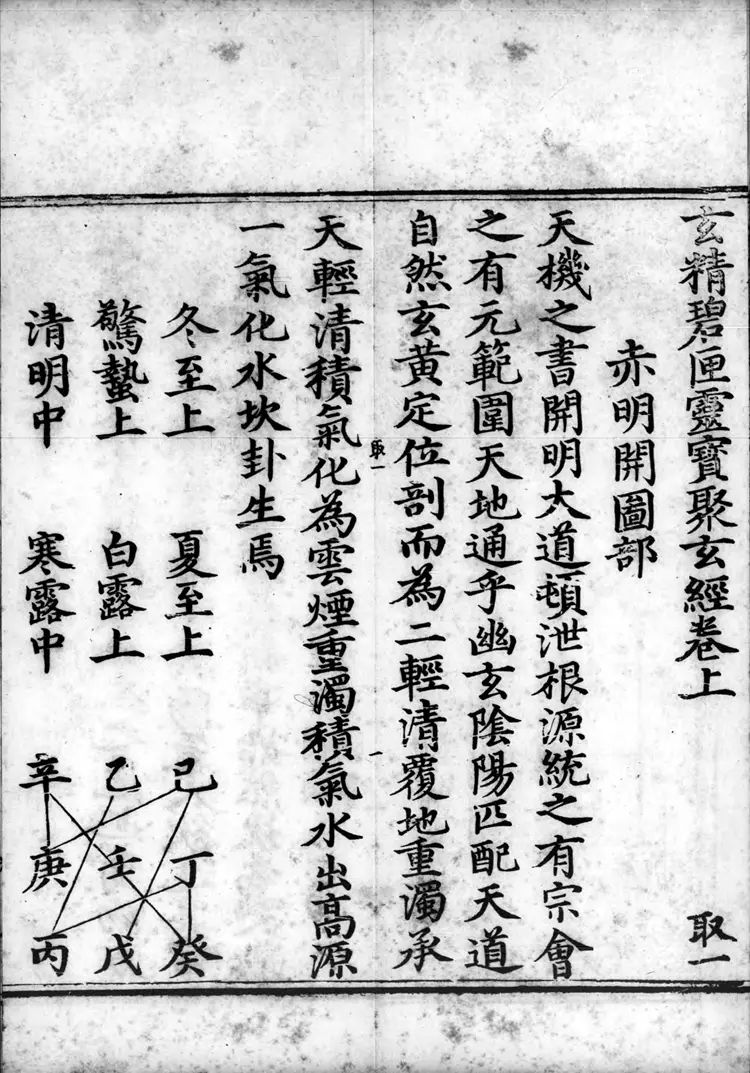 玄精碧匣靈寶聚玄經卷上 取一
赤明開圖部
天機之書開明大道頓泄根源統之有宗會
之有元範圍天地通乎幽玄陰陽匹配天道
自然玄黃定位剖而為二輕清覆地重濁承
取一 一
天輕清積氣化為雲煙重濁積氣水出高源
一氣化水坎卦生焉
冬至上 夏至上 己 丁 癸
驚蟄上 白露上 乙 壬 戊
清明中 寒露中 辛 庚 丙